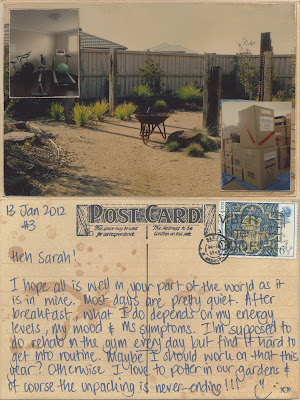 13 Jan 2012
POST CARD
#3
This space may be used for correspondence.
The Address to be Written on this side.
Heh Sarah!
I hope all is well in your part of the world as it
is in mine. Most days are pretty quiet. After
breakfast, what I do depends on my energy
levels, my mood & MS symptoms. I'm supposed to
do rehab in the gym every day but find it hard to
get into routine. Maybe I should work on that this
year? Otherwise I love to potter in our gardens &
of course the unpacking is never-ending!!!